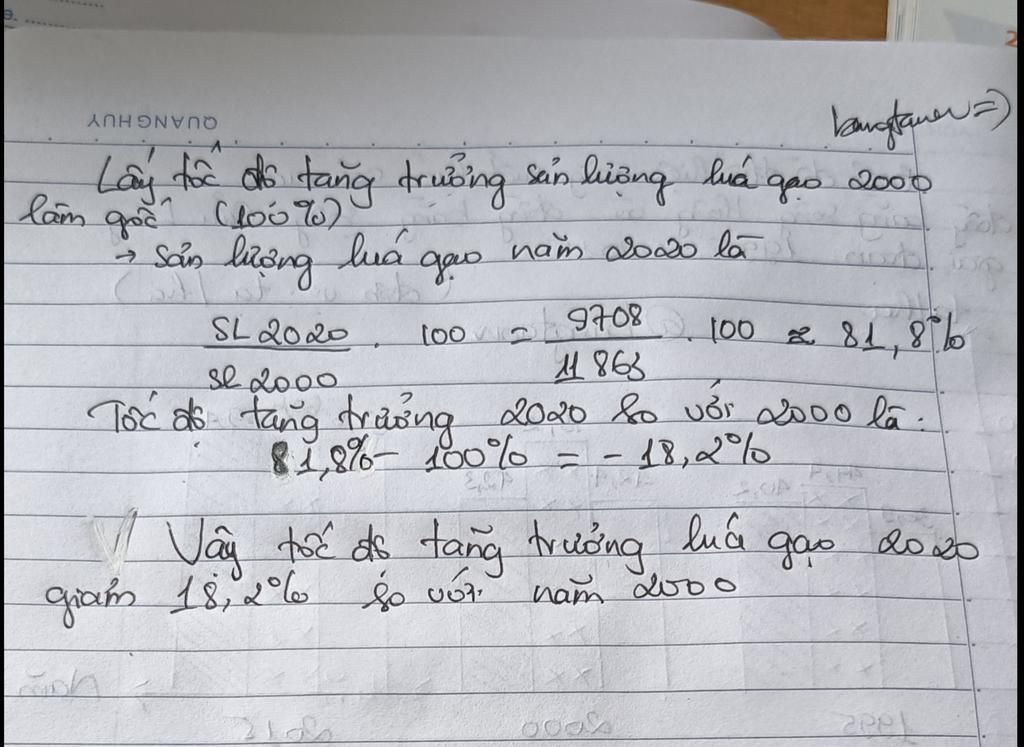 QUANGHUY
Lấy tốc độ tăng trưởng sản lượng luá gạo 2000
làm gốc (100%)
→ sản lượng luá gạo năm 2020 là
SL 2020 / SL 2000 . 100 = 9708 / 11863 . 100 ≈ 81,8%
Tốc độ tăng trưởng 2020 so với 2000 là:
81,8% - 100% = - 18,2%
Vậy tốc độ tăng trưởng luá gạo 2020
giảm 18,2% so với năm 2000
Năm
1995 2000 2015